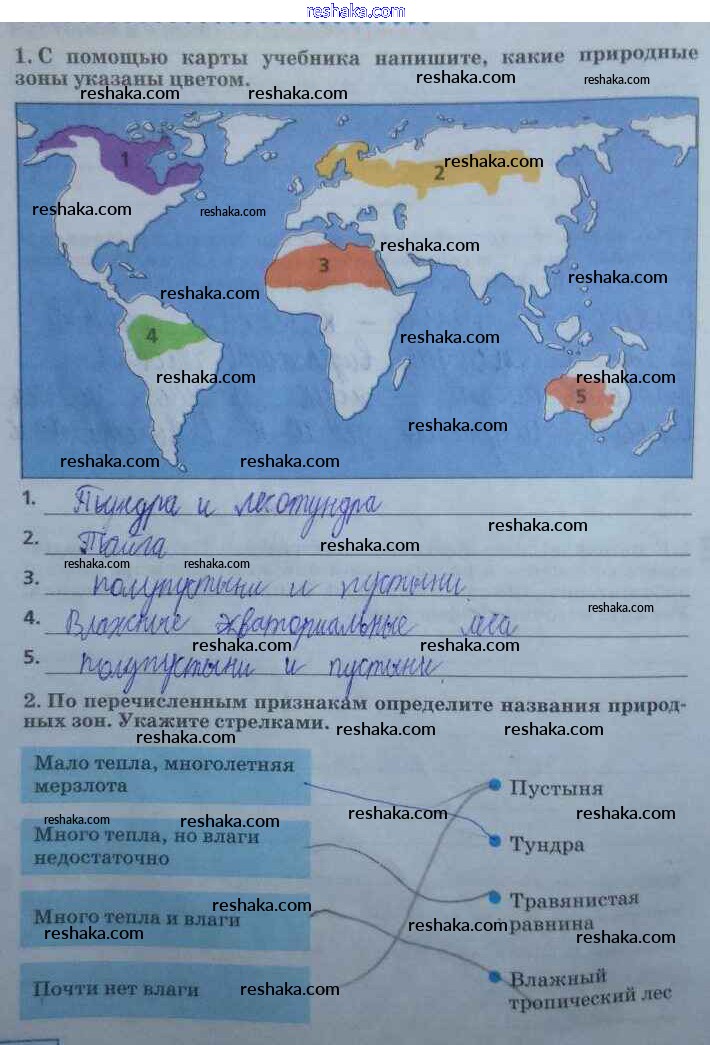 reshaka.com
1. С помощью карты учебника напишите, какие природные
зоны указаны цветом.
reshaka.com reshaka.com
reshaka.com reshaka.com
1
2
reshaka.com
reshaka.com reshaka.com
reshaka.com
3
reshaka.com
reshaka.com
4
reshaka.com
reshaka.com reshaka.com
5
reshaka.com
reshaka.com reshaka.com
1. Тундра и лесотундра
reshaka.com
2. Тайга
reshaka.com
reshaka.com reshaka.com
3. полупустыни и пустыни
reshaka.com
4. Влажные экваториальные леса
reshaka.com reshaka.com
5. полупустыни и пустыни
2. По перечисленным признакам определите названия природ-
ных зон. Укажите стрелками.
reshaka.com reshaka.com reshaka.com
Мало тепла, многолетняя
мерзлота
Пустыня
reshaka.com reshaka.com reshaka.com
Много тепла, но влаги
недостаточно
Тундра
reshaka.com
Много тепла и влаги
Травянистая
равнина
reshaka.com reshaka.com reshaka.com
Почти нет влаги
reshaka.com
Влажный
тропический лес